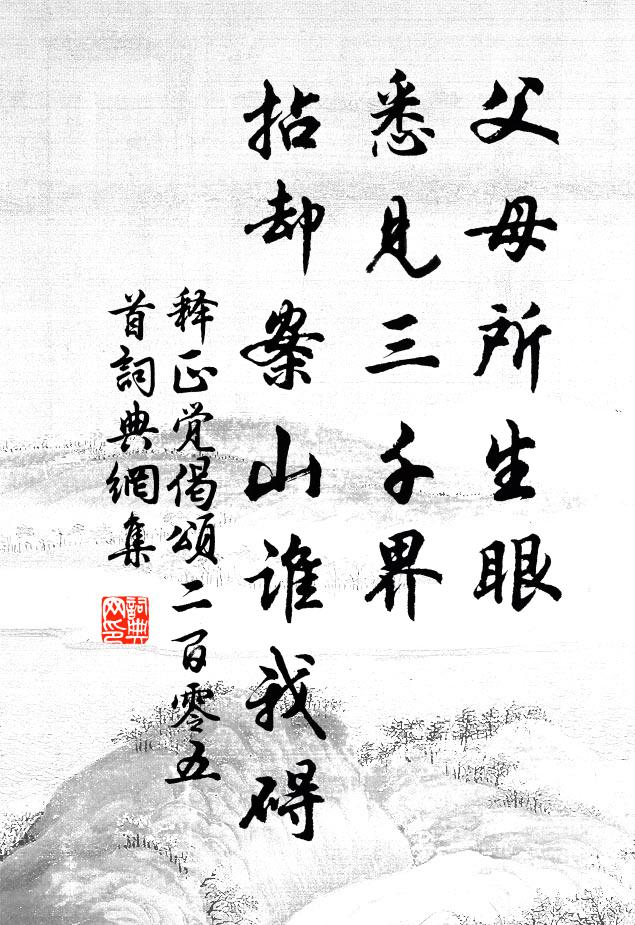 父母所生眼
悉见三千界
拈却案山谁我碍
释正觉偈颂二百零五
首詞典網集
詞典
网印